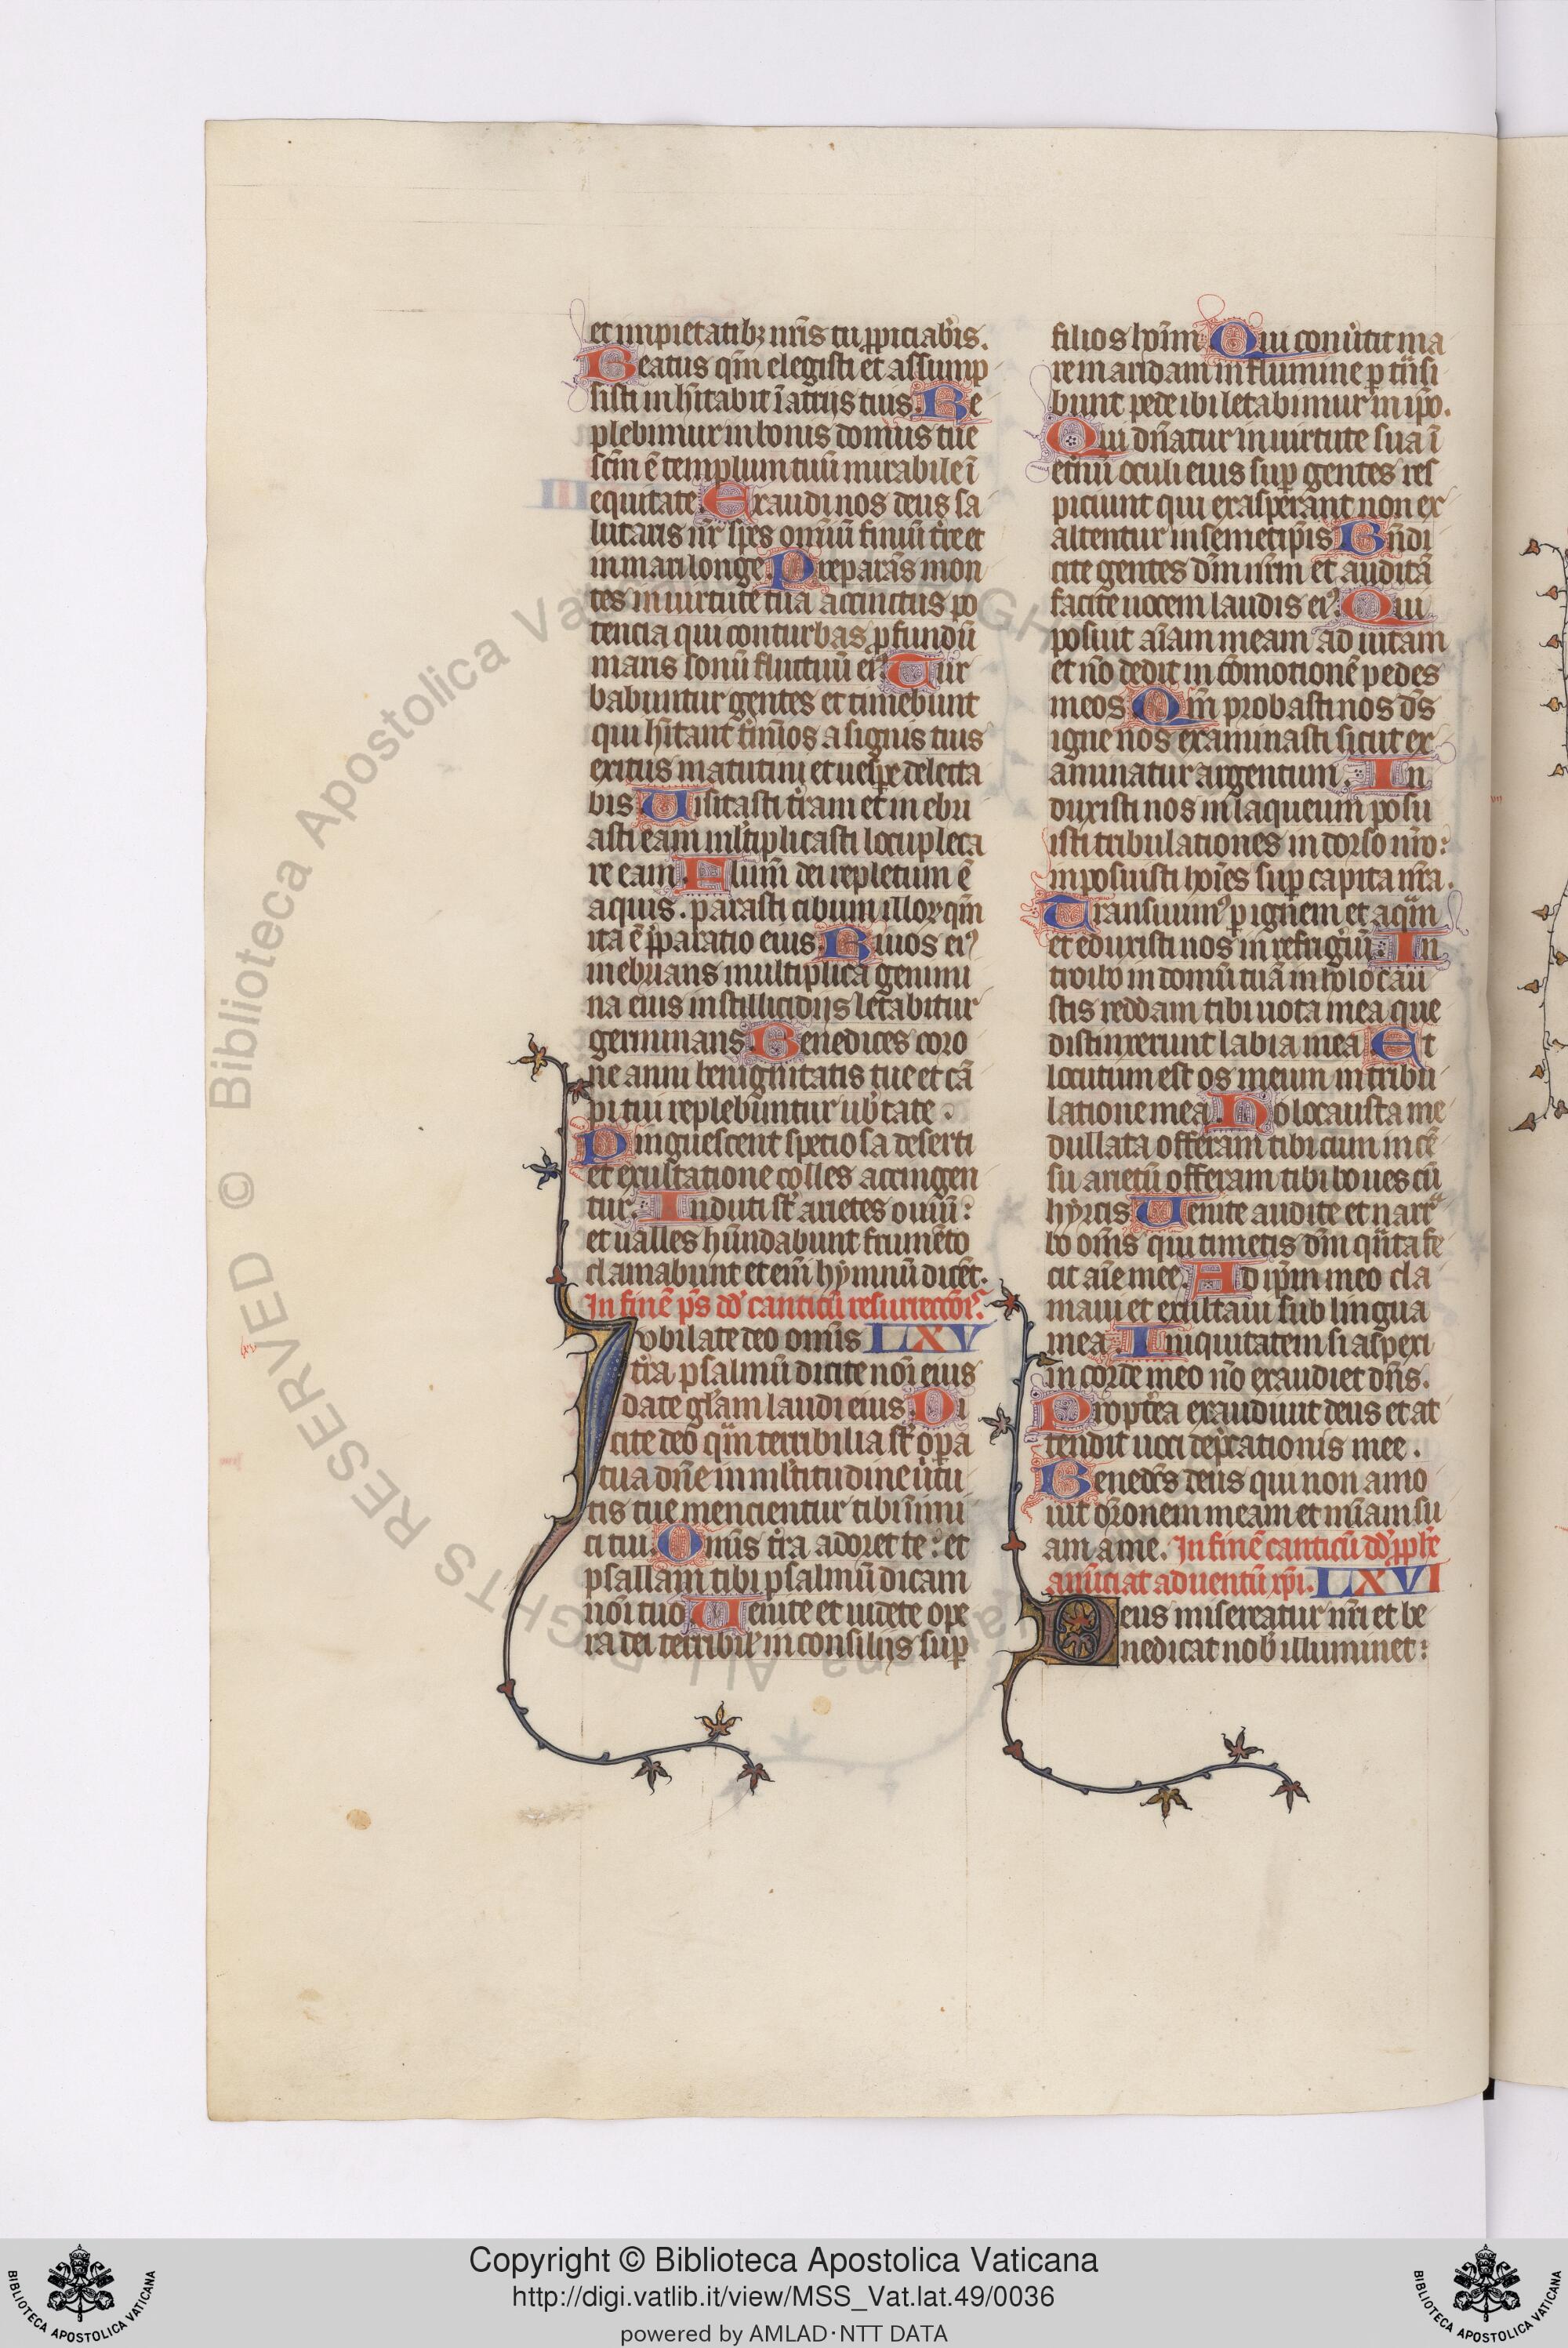 et impietatibꝫ nr̄is tu ꝓpiciab̾is.
Beatus qm̄ elegisti et assump
sisti inh̄itabit ī atrijs tuis. Re
plebimur in bonis domus tue
scm̄ ē templum tuū mirabile ī
equitate. Exaudi nos deus sa
lutaris nr̄ spes om̄iū finiū tr̾e et
in mari longe. Preparās mon
tes in uirtute tua accinctus po
tencia qui conturbas ꝓfundū
maris sonū fluctuū eiꝰ. Tur
babuntur gentes et timebunt
qui hīt̄ant t̾mīos a signis tuis
exitus matutini et uesꝑe delecta
bis. Uisitasti tr̾am et inebri
asti eam ml̾tiplicasti locupleta
re eam. Flum̄ dei repletum ē
aquis. parasti cibum illoꝝ qm̄
ita ē p̄paratio eius. Riuos eiꝰ
inebrians multiplica genimi
na eius in stillicidijs letabitur
germinans. Benedices coro
ne anni benignitatis tue et cā
pi tui replebuntur ub̾tate.
Pinguescent speciosa deserti
et exultatione colles accingen
tur. Induti st̄ arietes ouiū:
et ualles hūndabunt frumēto
clamabunt etem̄ hymnū dicēt.
In finē ps̄ dd̾ canticū resurrectōis.
Iubilate deo om̄is LXV
tr̾a psalmū dicite nōi eius
date gl̾am laudi eius. Di
cite deo qm̄ terribilia st̄ oꝑa
tua dn̄e in ml̾titudine u̾tu
tis tue mencientur tibi īimi
ci tui. Omis tr̾a adoret te: et
psallam tibi psalmū dicam
nōi tuo. Uenite et uidete ope
ra dei terribil̾ in consilijs suꝑ
filios hoīm. Qui conu̾tit ma
re in aridam in flumine ꝑtn̄si
bunt pede ibi letabimur in ip̄o.
Qui dn̄atur in uirtute sua ī
et̾nū oculi eius suꝑ gentes res
piciunt qui exasperant non ex
altentur in semetip̄is. Bn̄di
cite gentes dm̄ nr̄m et auditā
facite uocem laudis eiꝰ. Qui
posuit aīam meam ad uitam
et nō dedit in cōmotionē pedes
meos. Qm̄ probasti nos ds̄
igne nos examinasti sicut ex
aminatur argentum. In
duxisti nos in laqueum posu
isti tribulationes in dorso nr̄o:
inposuisti hoīes suꝑ capita nr̄a.
Transiuimꝰ ꝑ ignem et aquā
et eduxisti nos in refrig̾iū. In
troibo in domū tuā in holocau
stis reddam tibi uota mea que
distinxerunt labia mea. Et
locutum est os meum in tribu
latione mea. Holocausta me
dullata offeram tibi cum incē
su arietū offeram tibi boues cū
hyrcis. Uenite audite et narra
bo om̄s qui timetis dm̄ qn̄ta fe
cit aīe mee. Ad ip̄m meo cla
maui et exultaui sub lingua
mea. Iniquitatem si aspexi
in corde meo nō exaudiet dn̄s.
Propt̾ea exaudiuit deus et at
tendit uoci dep̄cationis mee.
Bened̄cs deus qui non amo
uit or̄onem meam et mīam su
am a me. In finē canticū dd̾ ꝓph̄e
anūciat aduentū xp̄i. LXVI
Deus misereatur nr̄i et be
nedicat nob̾ illuminet:
lxv
Copyright © Biblioteca Apostolica Vaticana
http://digi.vatlib.it/view/MSS_Vat.lat.49/0036
powered by AMLAD·NTT DATA
BIBLIOTECA APOSTOLICA VATICANA
BIBLIOTECA APOSTOLICA VATICANA